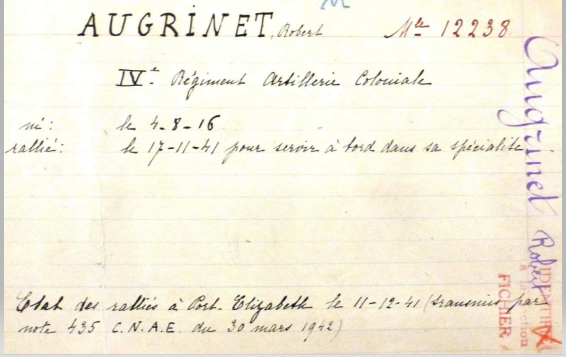 AUGRINET, Robert Mle 12238
IVe Régiment Artillerie Coloniale
né: le 4-8-16
rallié: le 17-11-41 pour servir à bord dans sa spécialité.
Etat des ralliés à Port. Elizabeth le 11-12-41 (transmis par
note 435 C.N.A.E. du 30 mars 1942)
Augrinet Robert
FICHIER